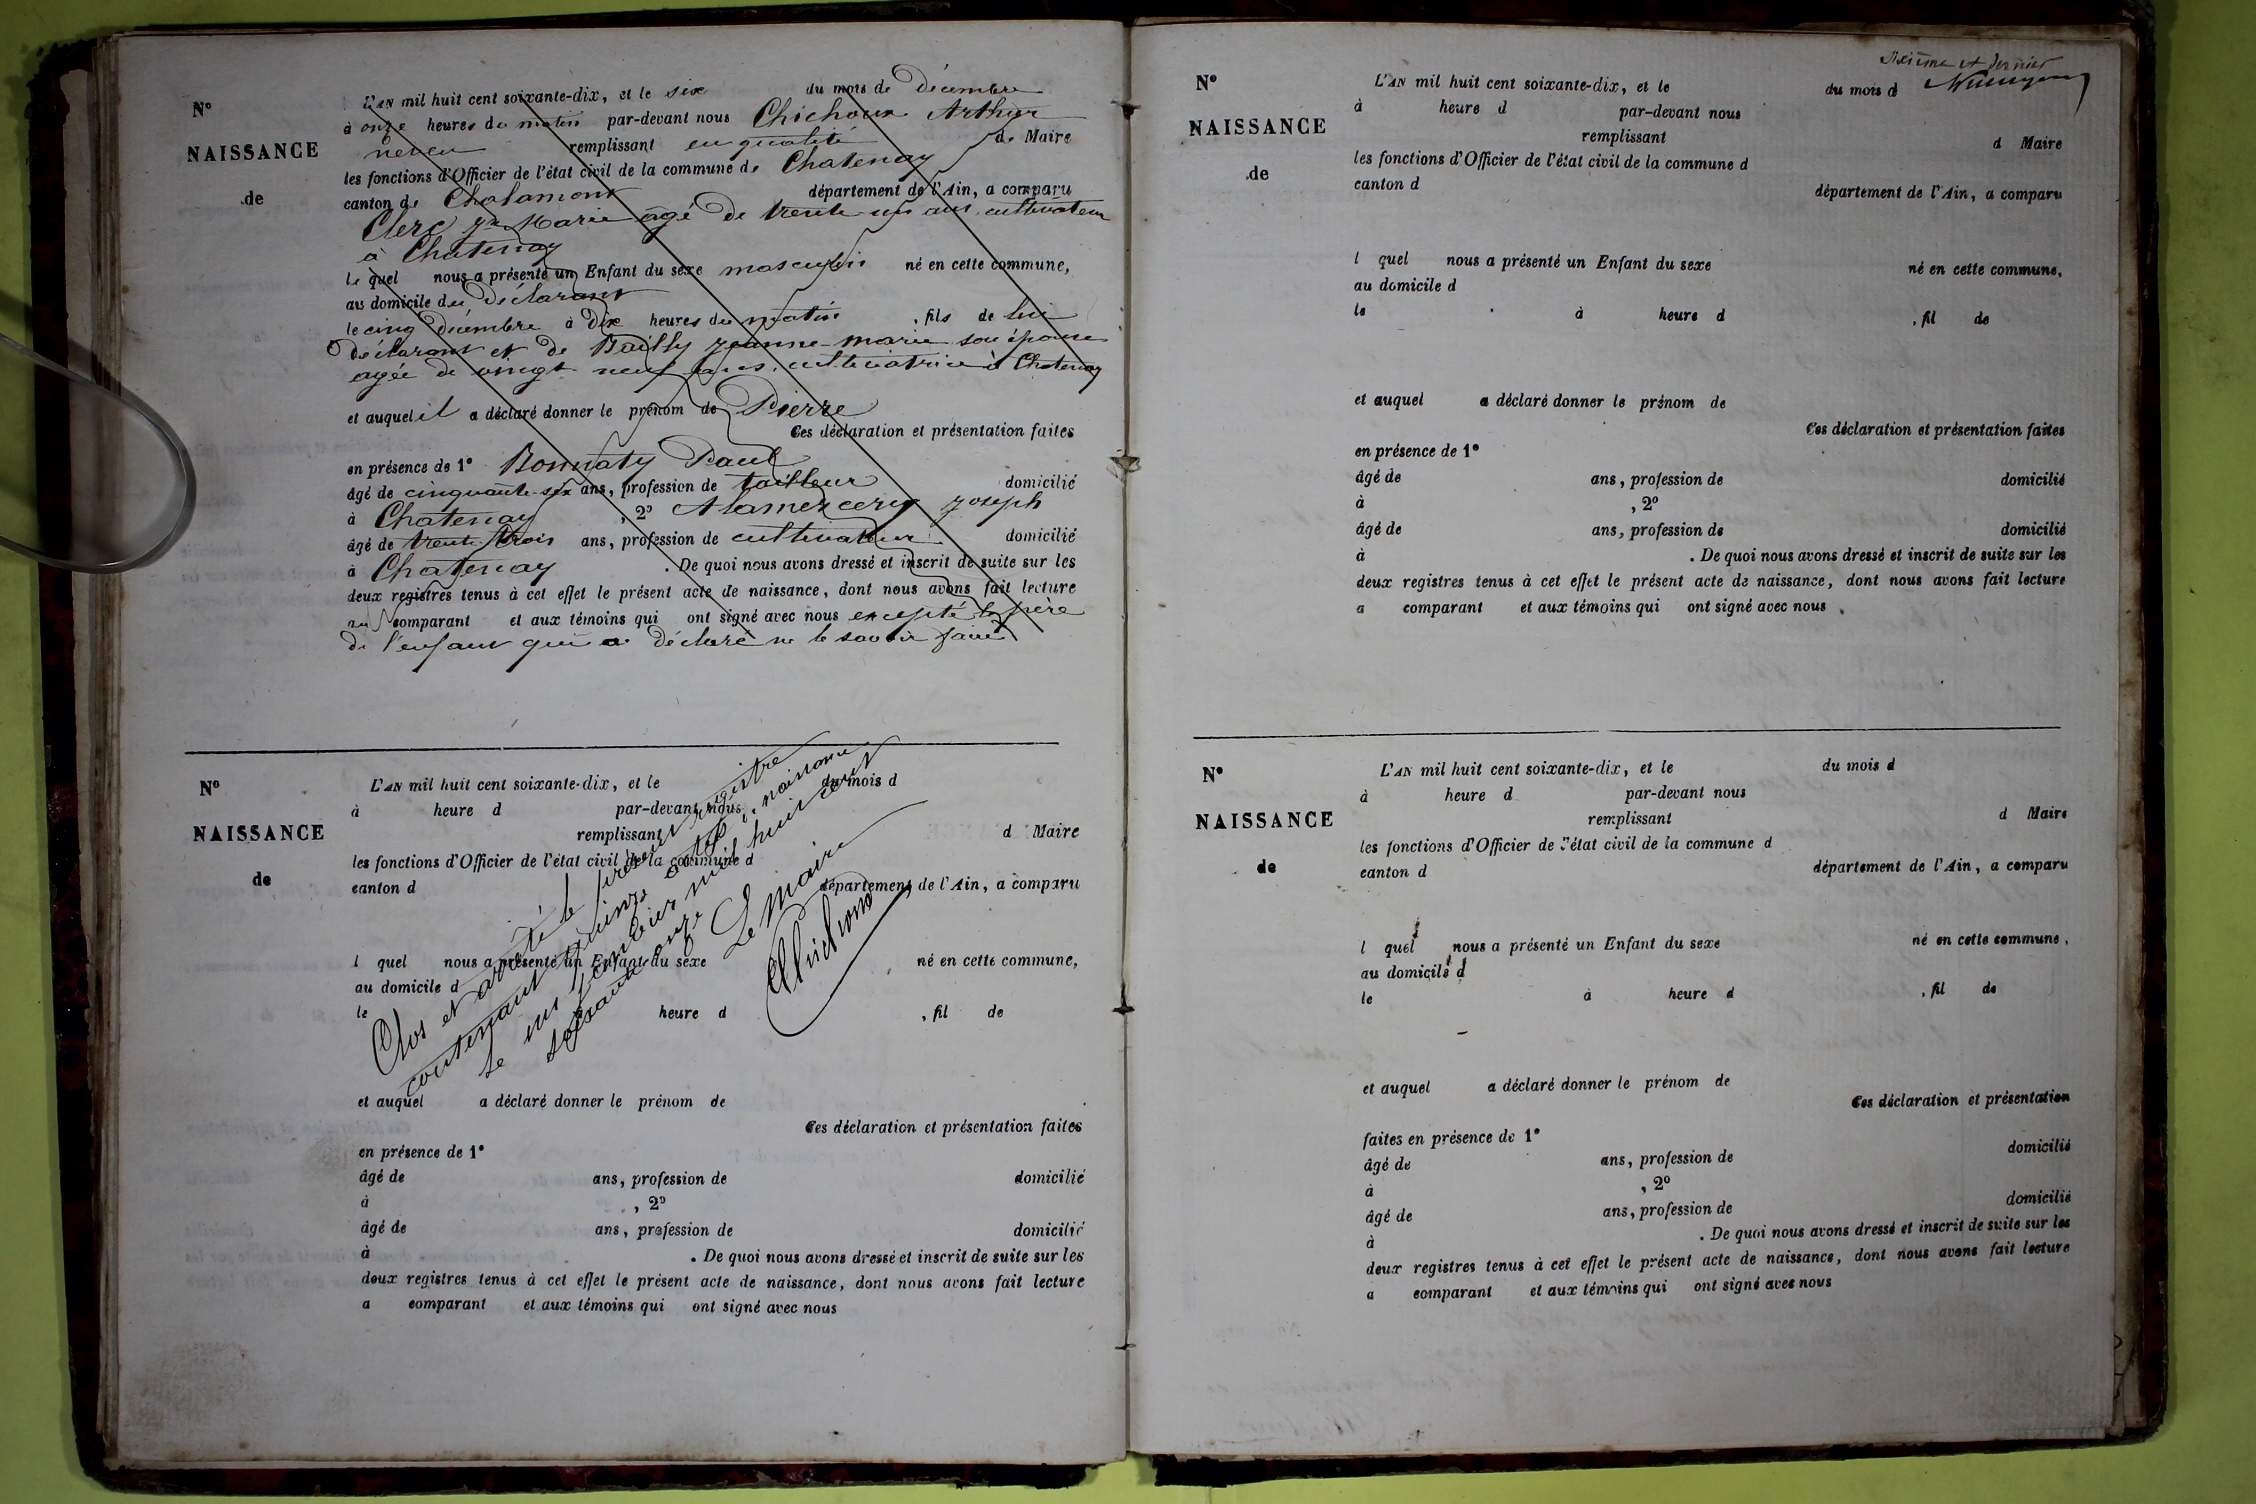 N°
NAISSANCE
de
L'AN mil huit cent soixante-dix, et le six du mois de décembre
à onze heures du matin par-devant nous Chichoux Arthur
neveu remplissant en qualité de Maire
les fonctions d'Officier de l'état civil de la commune de Chatenay
canton de Chalamont département de l'Ain, a comparu
Clerc Marie âgé de trente un ans cultivateur
à Chatenay
le quel nous a présenté un Enfant du sexe masculin né en cette commune,
au domicile du déclarant
le cinq décembre à dix heures du matin , fils de lui
déclarant et de Bailly jeanne-marie son épouse
agée de vingt neuf ans, cultivatrice à Chatenay
et auquel il a déclaré donner le prénom de Pierre
Ces déclaration et présentation faites
en présence de 1° Bonnaty Paul
âgé de cinquante-six ans, profession de tailleur domicilié
à Chatenay , 2° Alamercery joseph
âgé de trente trois ans, profession de cultivateur domicilié
à Chatenay . De quoi nous avons dressé et inscrit de suite sur les
deux registres tenus à cet effet le présent acte de naissance, dont nous avons fait lecture
au comparant et aux témoins qui ont signé avec nous excepté le père
de l'enfant qui a déclaré ne le savoir faire
N°
NAISSANCE
de
L'AN mil huit cent soixante-dix, et le du mois d
à heure d par-devant nous
remplissant d Maire
les fonctions d'Officier de l'état civil de la commune d
canton d département de l'Ain, a comparu
l quel nous a présenté un Enfant du sexe né en cette commune,
au domicile d
le heure d , fil de
Clos et arrêté le présent registre
contenant quinze actes de naissance
le un janvier mil huit cent
soixante onze Le Maire
Chichoux
et auquel a déclaré donner le prénom de
Ces déclaration et présentation faites
en présence de 1°
âgé de ans, profession de domicilié
à , 2°
âgé de ans, profession de domicilié
à . De quoi nous avons dressé et inscrit de suite sur les
deux registres tenus à cet effet le présent acte de naissance, dont nous avons fait lecture
a comparant et aux témoins qui ont signé avec nous
et dernier
N°
NAISSANCE
de
L'AN mil huit cent soixante-dix, et le du mois d
à heure d par-devant nous
remplissant d Maire
les fonctions d'Officier de l'état civil de la commune d
canton d département de l'Ain, a comparu
l quel nous a présenté un Enfant du sexe né en cette commune,
au domicile d
le à heure d , fil de
et auquel a déclaré donner le prénom de
Ces déclaration et présentation faites
en présence de 1°
âgé de ans, profession de domicilié
à , 2°
âgé de ans, profession de domicilié
à . De quoi nous avons dressé et inscrit de suite sur les
deux registres tenus à cet effet le présent acte de naissance, dont nous avons fait lecture
a comparant et aux témoins qui ont signé avec nous .
N°
NAISSANCE
de
L'AN mil huit cent soixante-dix, et le du mois d
à heure d par-devant nous
remplissant d Maire
les fonctions d'Officier de l'état civil de la commune d
canton d département de l'Ain, a comparu
l quel nous a présenté un Enfant du sexe né en cette commune,
au domicile d
le à heure d , fil de
et auquel a déclaré donner le prénom de
Ces déclaration et présentation
faites en présence de 1°
âgé de ans, profession de domicilié
à , 2°
âgé de ans, profession de domicilié
à . De quoi nous avons dressé et inscrit de suite sur les
deux registres tenus à cet effet le présent acte de naissance, dont nous avons fait lecture
a comparant et aux témoins qui ont signé avec nous